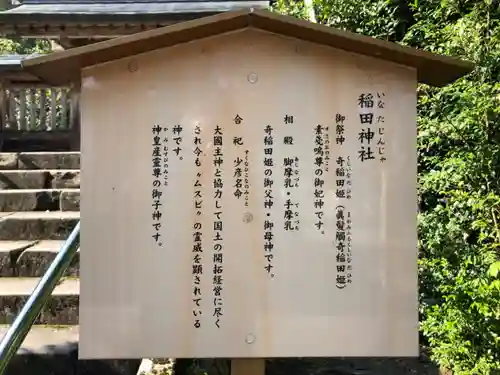 稲田神社
いなたじんじゃ
御祭神　奇稲田姫（眞髪觸奇稲田姫）
素戔嗚尊の御妃神です。
相殿　脚摩乳・手摩乳
あしなづち　てなづち
奇稲田姫の御父神・御母神です。
合祀　少彦名命
すくなひこなのみこと
大國主神と協力して国土の開拓経営に尽く
され今も〝ムスビ〟の霊威を顕されている
神です。
神皇産霊尊の御子神です。
かみむすびのみこと